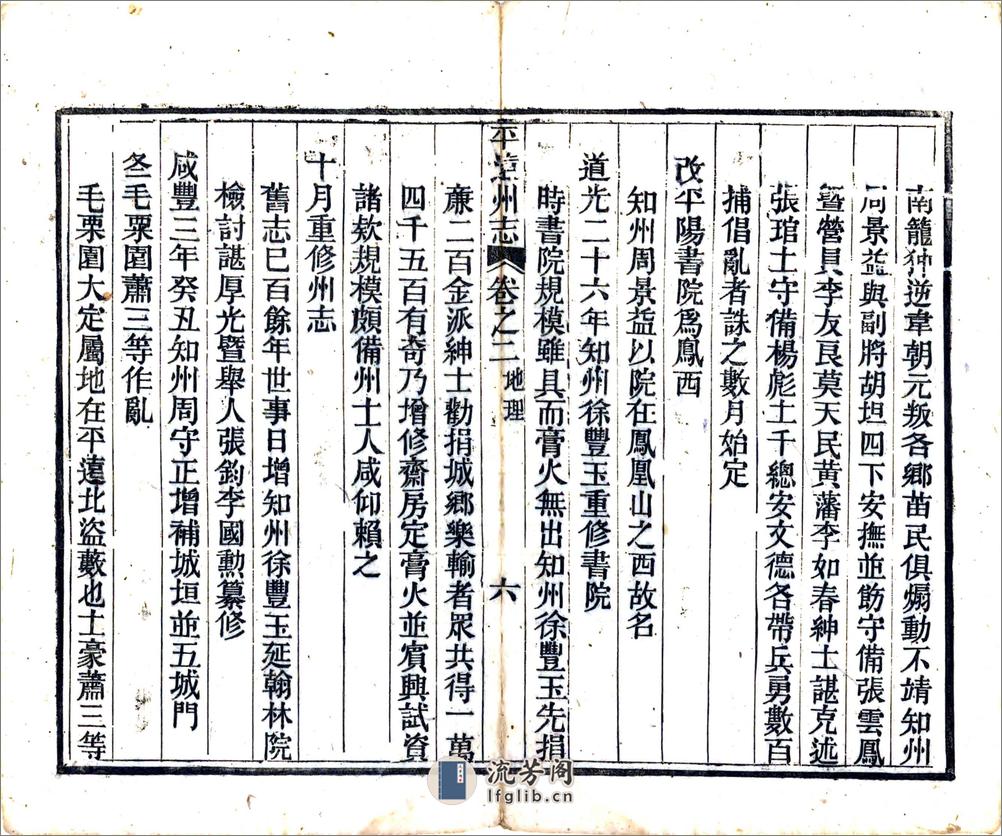 南籠狆逆韋朝元叛各鄉苗民俱煽動不靖知州
周景益與副將胡坦四下安撫並飭守備張雲鳳
暨營員李友良莫天民黃藩李如春紳士諶克述
張琯土守備楊彪土千總安文德各帶兵勇數百
捕倡亂者誅之數月始定
改平陽書院爲鳳西
知州周景益以院在鳳凰山之西故名
道光二十六年知州徐豐玉重修書院
時書院規模雖具而膏火無出知州徐豐玉先捐
亷二百金派紳士勸捐城鄉樂輸者眾共得一萬
四千五百有奇乃增修齋房定膏火並賓興試資
諸欵規模頗備州士人咸仰賴之
十月重修州志
舊志已百餘年世事日增知州徐豐玉延翰林院
檢討諶厚光暨舉人張鈞李國勲纂修
咸豐三年癸丑知州周守正增補城垣並五城門
冬毛栗園蕭三等作亂
毛栗園大定屬地在平遠北盜藪也土豪蕭三等
平遠州志 卷之二 地理 六
流芳阁
lfglib.cn